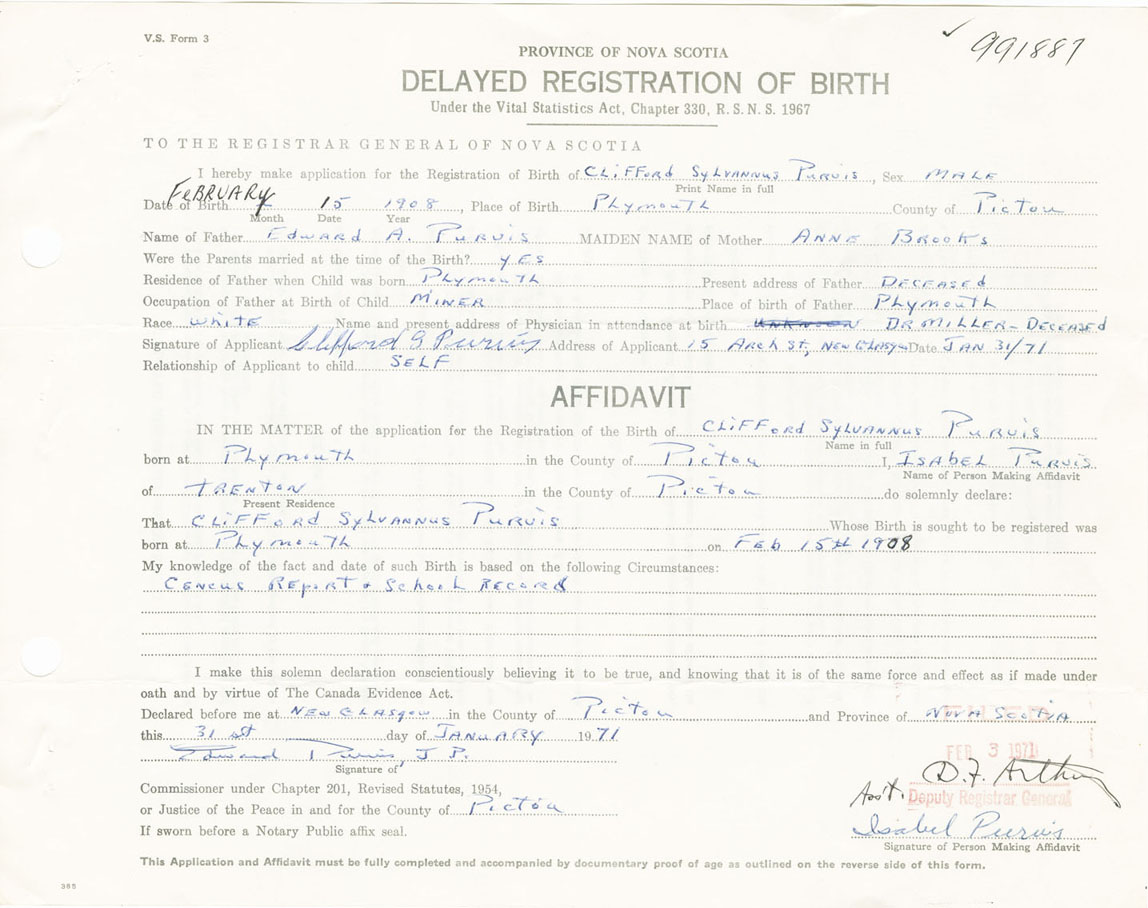 V.S. Form 3
✓ 991887
PROVINCE OF NOVA SCOTIA
DELAYED REGISTRATION OF BIRTH
Under the Vital Statistics Act, Chapter 330, R.S.N.S. 1967
TO THE REGISTRAR GENERAL OF NOVA SCOTIA
I hereby make application for the Registration of Birth of CLIFFORD SYLVANNUS PURVIS, Sex MALE
Print Name in full
Date of Birth FEBRUARY 15 1908, Place of Birth PLYMOUTH County of PICTOU
Month Date Year
Name of Father EDWARD A. PURVIS MAIDEN NAME of Mother ANNE BROOKS
Were the Parents married at the time of the Birth? YES
Residence of Father when Child was born PLYMOUTH Present address of Father DECEASED
Occupation of Father at Birth of Child MINER Place of birth of Father PLYMOUTH
Race WHITE Name and present address of Physician in attendance at birth UNKNOWN DR MILLER - DECEASED
Signature of Applicant Clifford S Purvis Address of Applicant 15 ARCH ST, NEW GLASGOW Date JAN 31/71
Relationship of Applicant to child SELF
AFFIDAVIT
IN THE MATTER of the application for the Registration of the Birth of CLIFFORD SYLVANNUS PURVIS
Name in full
born at PLYMOUTH in the County of PICTOU I, ISABEL PURVIS
Name of Person Making Affidavit
of TRENTON in the County of PICTOU do solemnly declare:
Present Residence
That CLIFFORD SYLVANNUS PURVIS Whose Birth is sought to be registered was
born at PLYMOUTH on FEB 15th 1908
My knowledge of the fact and date of such Birth is based on the following Circumstances:
CENCUS REPORT + SCHOOL RECORD
I make this solemn declaration conscientiously believing it to be true, and knowing that it is of the same force and effect as if made under
oath and by virtue of The Canada Evidence Act.
Declared before me at NEW GLASGOW in the County of PICTOU and Province of NOVA SCOTIA
this 31 st day of JANUARY 1971
FEB 3 1971
Edward Purvis, J.P.
Signature of
D.F. Arthur
Commissioner under Chapter 201, Revised Statutes, 1954,
Ass't. Deputy Registrar General
or Justice of the Peace in and for the County of PICTOU
Isabel Purvis
If sworn before a Notary Public affix seal.
Signature of Person Making Affidavit
This Application and Affidavit must be fully completed and accompanied by documentary proof of age as outlined on the reverse side of this form.
385